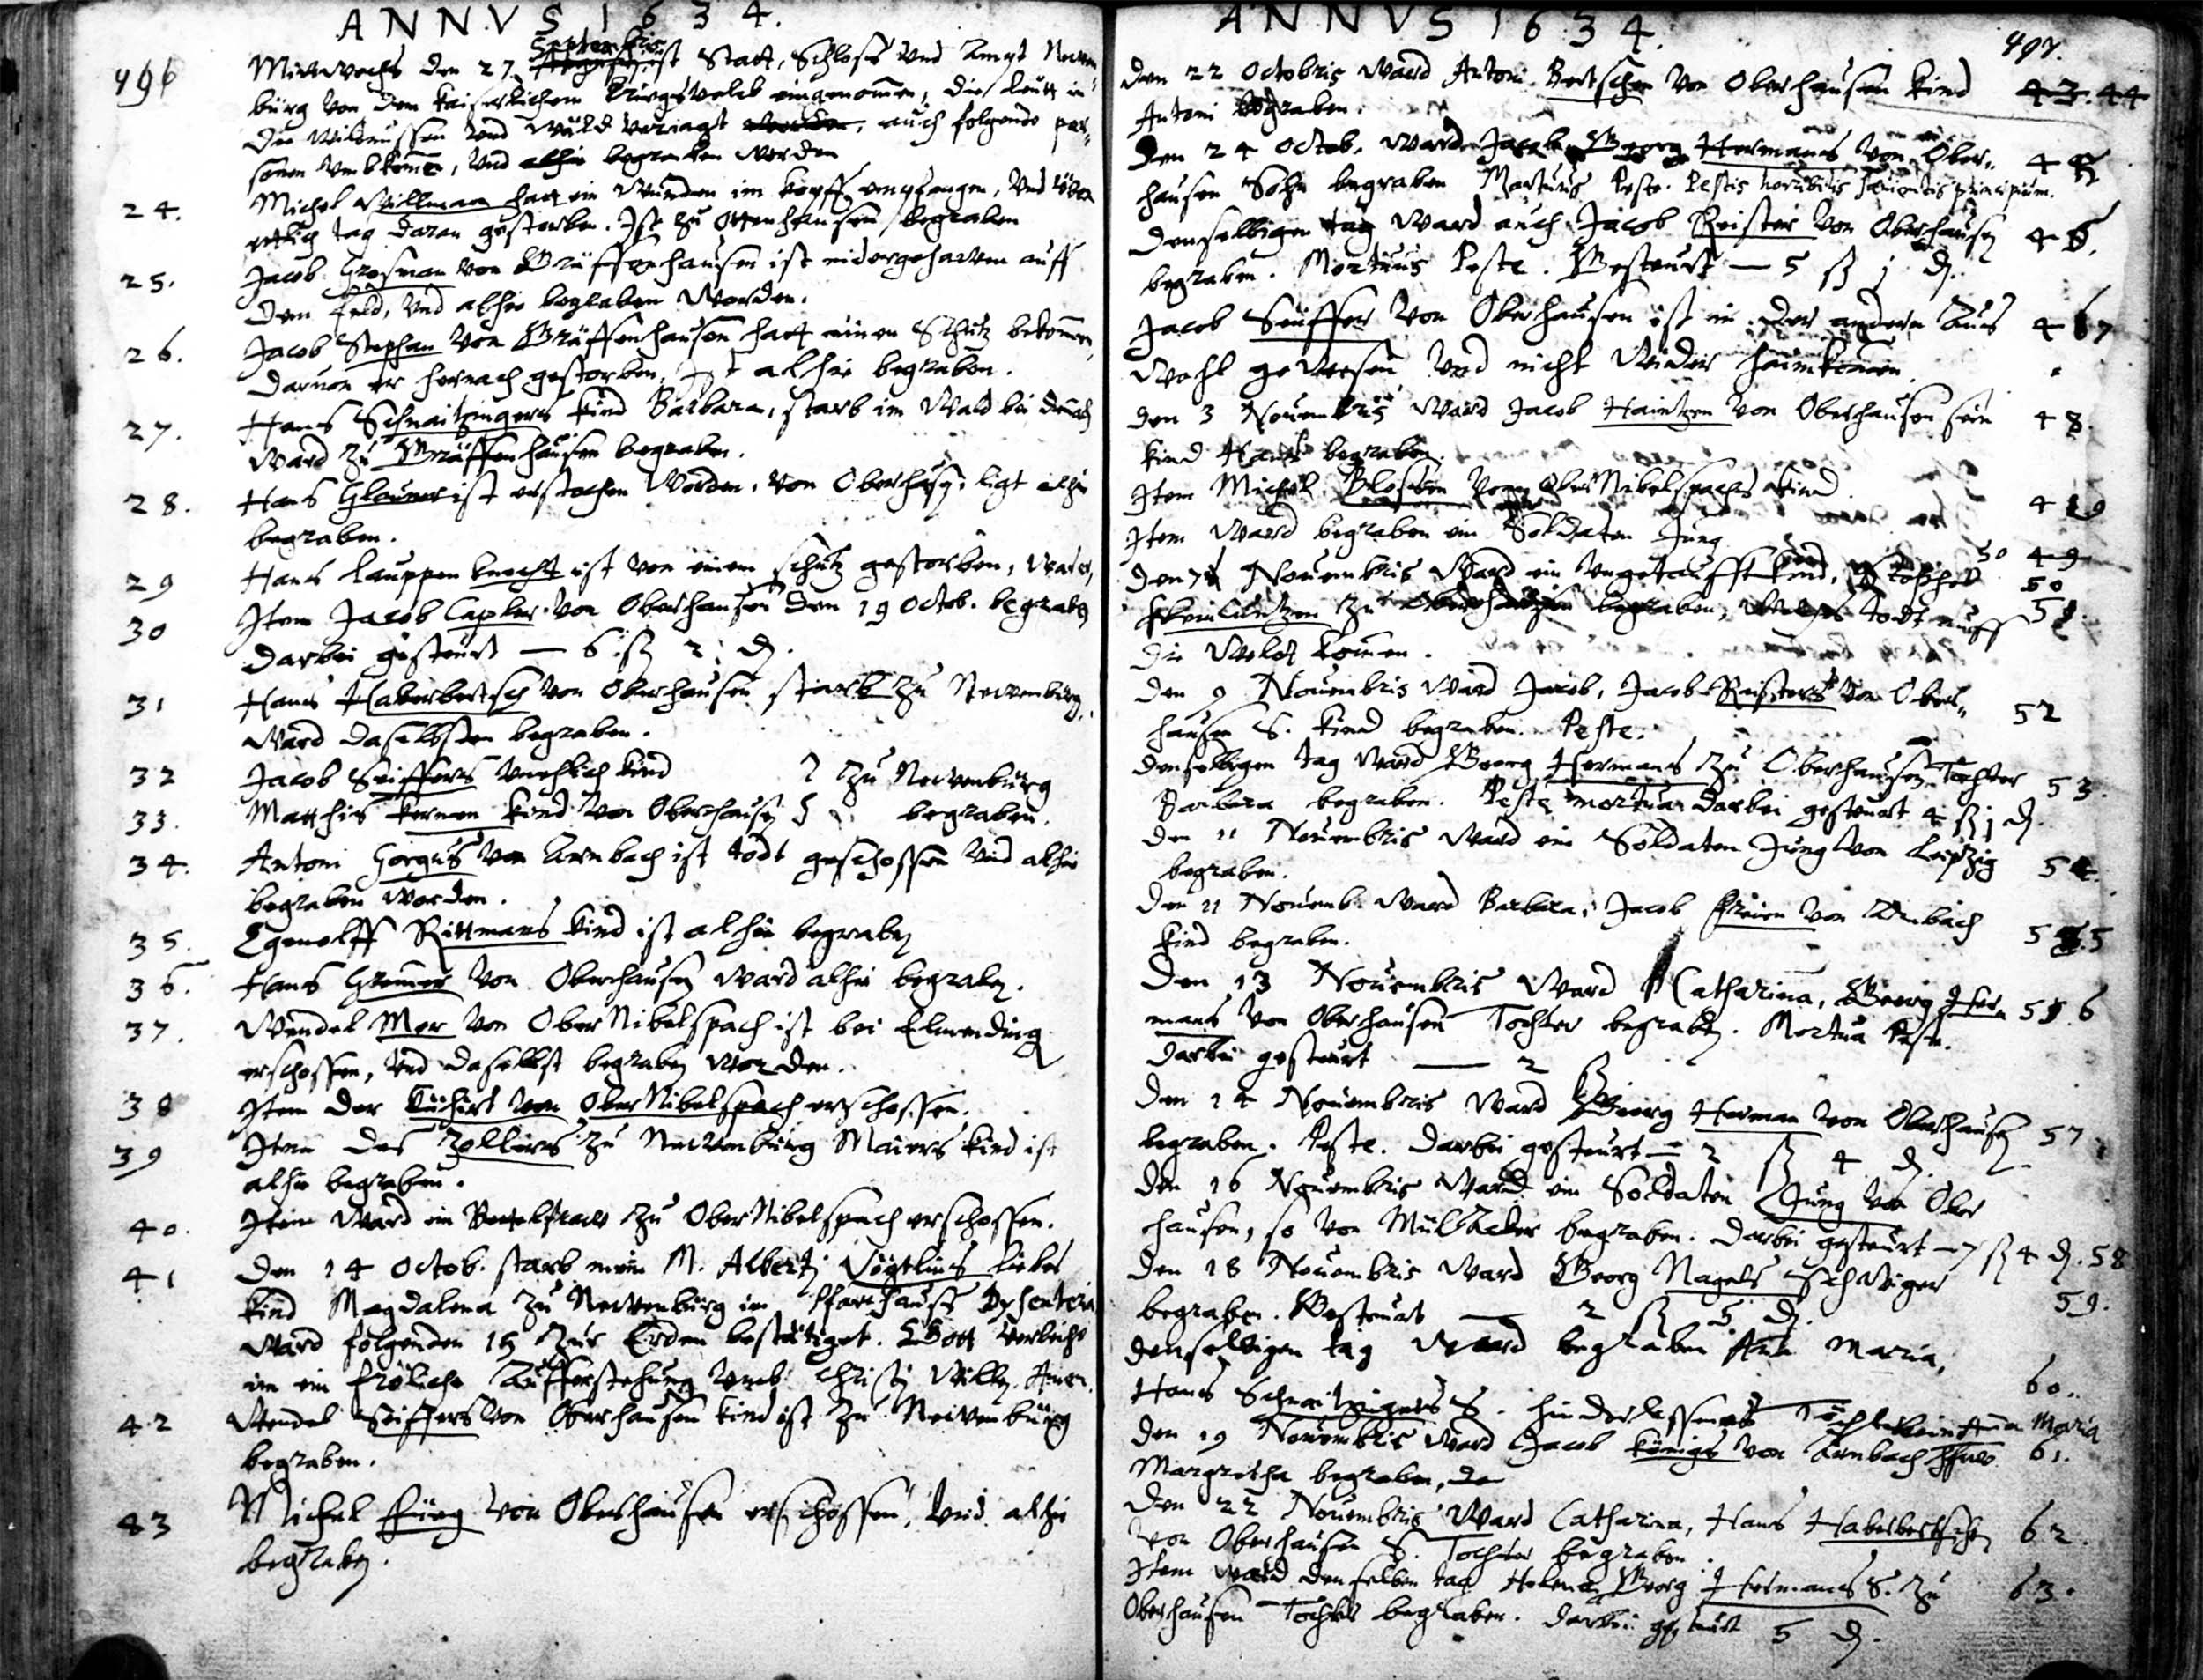 ANNVS 1634.
496
Mittwochs den 27 Septembris ist Statt, Schloss vnd Ampt Newen
bürg von dem Kaiserlichem Kriegsvolck eingenomen, die leutt in
die Wiltnussen vnd Wäld veriagt worden, auch folgende per-
sonen vmbkomen, vnd alhie begraben worden
24. Michel Willman hatt ein Wunden im Kopff empfangen, vnd über
ettlich tag daran gestorben. Ist zu Ottenhausen begraben
25. Jacob Grosman von Gräffenhausen ist nidergehawen auff
dem Feld, vnd alhie begraben worden.
26. Jacob Stephan von Gräffenhausen hatt einen Schutz bekomen,
daruon er hernach gestorben, Ist alhie begraben.
27. Hans Schnaitzingers Kind Barbara, starb im Wald bei
ward zu Gräffenhausen begraben.
28. Hans Glauner ist erstochen worden, von Oberhausen, ligt alhie
begraben.
29 Hans Lauppen Knecht ist von einem schutz gestorben,
30 Item Jacob Capler von Oberhausen den 19 Octob. begraben
darbei gesteurt — 6 ß 2 d.
31 Hans Haberbertsch von Oberhausen starb zu Newenbürg,
ward daselbsten begraben.
32 Jacob Seiffers vnehlich Kind } zu Newenbürg
33. Matthis Kernen Kind von Oberhausen } begraben.
34. Antoni Gorgus von Arnbach ist todt geschossen vnd alhie
begraben worden.
35. Egenolff Rittmans Kind ist alhie begraben
36. Hans Gremer von Oberhausen ward alhie begraben.
37. Wendel Mer von OberNibelspach ist bei Elmending
erschossen, vnd daselbst begraben worden.
38 Item der Kühirt von OberNibelspach erschossen.
39 Item des Zollers zu Newenbürg Maiers Kind ist
alhie begraben.
40. Item ward ein Bettelfraw zu OberNibelspach erschossen.
41 Den 14 Octob. starb mein M. Alberti Vögtlins liebes
Kind Magdalena zu Newenbürg im Pfarrhauss Dysenteria
ward folgenden 15 zur Erden bestätiget. Gott verleihe
im ein fröliche Aufferstehung vmb Christi willen. Amen.
42 Wendel Seiffers von Oberhausen Kind ist zu Newenbürg
begraben.
43 Michel von Oberhausen erschossen, vnd alhie
begraben.
ANNVS 1634.
497.
Den 22 Octobris ward Antoni Bertschen von Oberhausen Kind 43. 44
Antoni begraben.
Den 24 Octob. ward Georg Hermans von Ober- 4
hausen Sohn begraben Mortuus Peste. Pestis horribilis saeuientis principium.
Denselbigen tag ward auch Jacob Reister von Oberhausen 46.
begraben. Mortuus Peste. Gesteurt — 5 ß j d.
Jacob Seuffer von Oberhausen ist in der andern Aus 47
wahl gewesen vnd nicht wider haimkomen.
Den 3 Nouembris ward Jacob Haintzen von Oberhausen sein 48.
Kind Hans begraben.
Item Michel Blosten von OberNibelspachs Kind. 49
Item ward begraben ein Soldaten Jung 50 49
Den 7 Nouembris ward ein vngetaufft Kind, 50
zu Oberhausen begraben, welches todt auff 51.
die Welt komen.
Den 9 Nouembris ward Jacob, Jacob Reisters von Ober- 52
hausen S. Kind begraben. Peste.
Denselbigen tag ward Georg Hermans zu Oberhausen Tochter 53.
Barbara begraben. Peste mortua darbei gesteurt 4 ß j d.
Den 11 Nouembris ward ein Soldaten Jung von Leipzig 54.
begraben.
Den 11 Nouemb. ward Barbara, Jacob von Arnbach 55
Kind begraben.
Den 13 Nouembris ward Catharina, Georg Her- 56
mans von Oberhausen Tochter begraben. Mortua Peste.
darbei gesteurt — 2 ß
Den 14 Nouembris ward Georg Herman von Oberhausen 57
begraben. Peste. Darbei gesteurt — 2 ß 4 d.
Den 16 Nouembris ward ein Soldaten Jung von Ober
hausen, so von Mülacker begraben. Darbei gesteurt — 7 ß 4 d. 58
Den 18 Nouembris ward Georg Nagels Schwiger 59.
begraben. Gesteurt — 2 ß 5 d.
Denselbigen tag ward begraben Ana Maria, 60.
Hans Schnaitzingers S. hinderlassenes Töchterlein Anna Maria
Den 19 Nouembris ward Jacob Königs von Arnbach Hfraw 61.
Margretha begraben,
Den 22 Nouembris ward Catharina, Hans Haberbertschen 62.
von Oberhausen S. Tochter begraben.
Item ward denselben tag Helena Georg Hermans S. zu 63.
Oberhausen Tochter begraben. Darbei gesteurt 5 d.